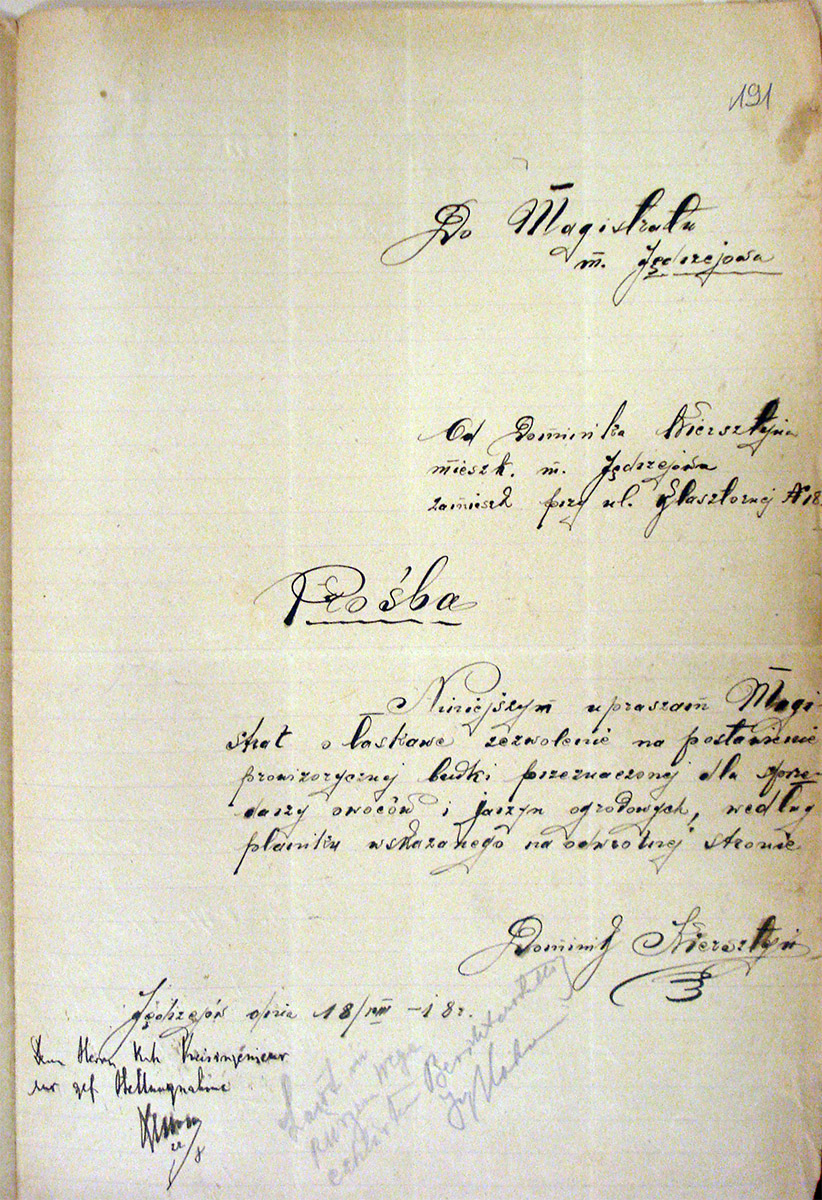 191
Do Magistratu
m. Jędrzejowa
Od Dominika Kiersztyna
mieszk. m. Jędrzejowa
zamieszk przy ul. Klasztornej N 18
Prośba
Niniejszym upraszam Magi-
strat o łaskawe zezwolenie na postawienie
prowizorycznej budki przeznaczonej dla sprze-
daszy owoców i jaszyn ogrodowych, według
planiku wskazanego na odwrotnej stronie
Dominik Kiersztyn
Jędrzejów dnia 18/VIII -18 r.
Dem Herrn Kreisingenieur
zur gef. Stellungnahme
22/8